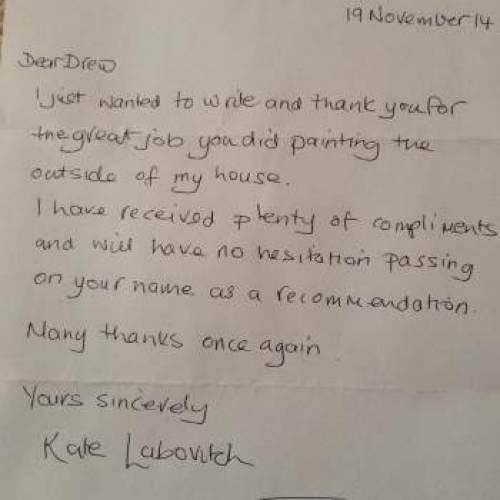 19 November 14
Dear Drew
I just wanted to write and thank you for
the great job you did painting the
outside of my house.
I have received plenty of compliments
and will have no hesitation passing
on your name as a recommendation.
Many thanks once again.
Yours sincerely
Kate Labovitch